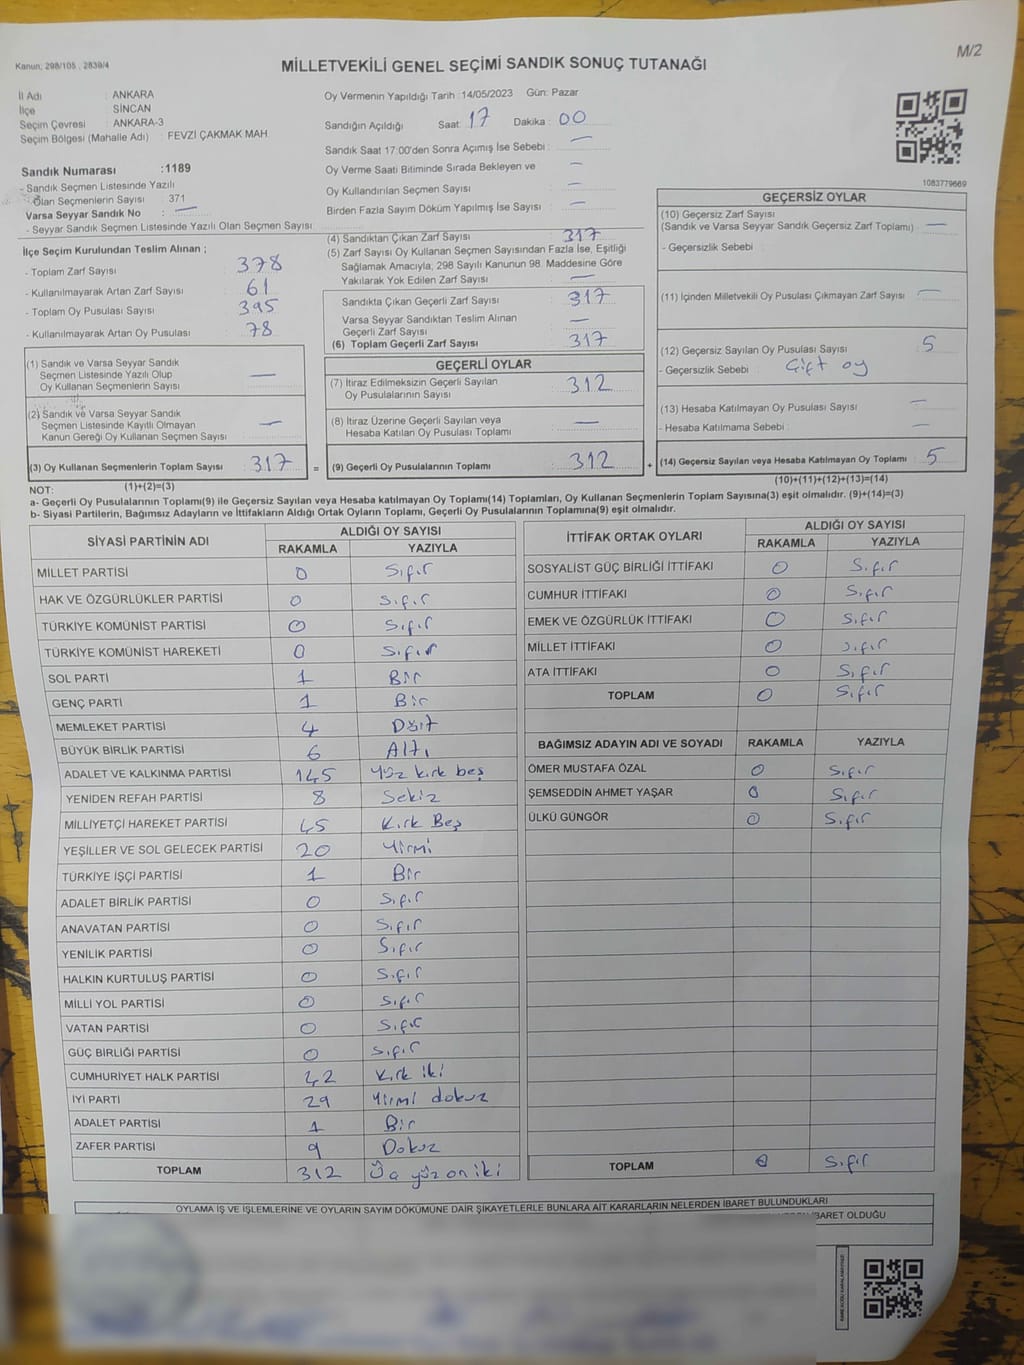 M/2
Kanun; 298/105 , 2839/4
MİLLETVEKİLİ GENEL SEÇİMİ SANDIK SONUÇ TUTANAĞI
İl Adı : ANKARA
İlçe : SİNCAN
Seçim Çevresi : ANKARA-3
Seçim Bölgesi (Mahalle Adı) : FEVZİ ÇAKMAK MAH.
Sandık Numarası :1189
- Sandık Seçmen Listesinde Yazılı
Olan Seçmenlerin Sayısı : 371
Varsa Seyyar Sandık No : —
- Seyyar Sandık Seçmen Listesinde Yazılı Olan Seçmen Sayısı :
Oy Vermenin Yapıldığı Tarih :14/05/2023 Gün: Pazar
Sandığın Açıldığı Saat: 17 Dakika : 00
Sandık Saat 17:00'den Sonra Açımış İse Sebebi : —
Oy Verme Saati Bitiminde Sırada Bekleyen ve —
Oy Kullandırılan Seçmen Sayısı : —
Birden Fazla Sayım Döküm Yapılmış İse Sayısı : —
1083779669
İlçe Seçim Kurulundan Teslim Alınan ;
- Toplam Zarf Sayısı : 378
- Kullanılmayarak Artan Zarf Sayısı : 61
- Toplam Oy Pusulası Sayısı : 395
- Kullanılmayarak Artan Oy Pusulası : 78
(1) Sandık ve Varsa Seyyar Sandık
Seçmen Listesinde Yazılı Olup
Oy Kullanan Seçmenlerin Sayısı : —
(2) Sandık ve Varsa Seyyar Sandık
Seçmen Listesinde Kayıtlı Olmayan
Kanun Gereği Oy Kullanan Seçmen Sayısı : —
(3) Oy Kullanan Seçmenlerin Toplam Sayısı : 317
(1)+(2)=(3)
(4) Sandıktan Çıkan Zarf Sayısı : 317
(5) Zarf Sayısı Oy Kullanan Seçmen Sayısından Fazla İse, Eşitliği
Sağlamak Amacıyla; 298 Sayılı Kanunun 98. Maddesine Göre
Yakılarak Yok Edilen Zarf Sayısı : —
Sandıkta Çıkan Geçerli Zarf Sayısı : 317
Varsa Seyyar Sandıktan Teslim Alınan
Geçerli Zarf Sayısı : —
(6) Toplam Geçerli Zarf Sayısı : 317
GEÇERLİ OYLAR
(7) İtiraz Edilmeksizin Geçerli Sayılan
Oy Pusulalarının Sayısı : 312
(8) İtiraz Üzerine Geçerli Sayılan veya
Hesaba Katılan Oy Pusulası Toplamı : —
= (9) Geçerli Oy Pusulalarının Toplamı : 312
GEÇERSİZ OYLAR
(10) Geçersiz Zarf Sayısı
(Sandık ve Varsa Seyyar Sandık Geçersiz Zarf Toplamı) : —
- Geçersizlik Sebebi :
(11) İçinden Milletvekili Oy Pusulası Çıkmayan Zarf Sayısı : —
(12) Geçersiz Sayılan Oy Pusulası Sayısı : 5
- Geçersizlik Sebebi : Çift oy
(13) Hesaba Katılmayan Oy Pusulası Sayısı : —
- Hesaba Katılmama Sebebi : —
+ (14) Geçersiz Sayılan veya Hesaba Katılmayan Oy Toplamı : 5
(10)+(11)+(12)+(13)=(14)
NOT:
a- Geçerli Oy Pusulalarının Toplamı(9) ile Geçersiz Sayılan veya Hesaba katılmayan Oy Toplamı(14) Toplamları, Oy Kullanan Seçmenlerin Toplam Sayısına(3) eşit olmalıdır. (9)+(14)=(3)
b- Siyasi Partilerin, Bağımsız Adayların ve İttifakların Aldığı Ortak Oyların Toplamı, Geçerli Oy Pusulalarının Toplamına(9) eşit olmalıdır.
SİYASİ PARTİNİN ADI ALDIĞI OY SAYISI
RAKAMLA YAZIYLA
MİLLET PARTİSİ 0 Sıfır
HAK VE ÖZGÜRLÜKLER PARTİSİ 0 Sıfır
TÜRKİYE KOMÜNİST PARTİSİ 0 Sıfır
TÜRKİYE KOMÜNİST HAREKETİ 0 Sıfır
SOL PARTİ 1 Bir
GENÇ PARTİ 1 Bir
MEMLEKET PARTİSİ 4 Dört
BÜYÜK BİRLİK PARTİSİ 6 Altı
ADALET VE KALKINMA PARTİSİ 145 Yüz kırk beş
YENİDEN REFAH PARTİSİ 8 Sekiz
MİLLİYETÇİ HAREKET PARTİSİ 45 Kırk Beş
YEŞİLLER VE SOL GELECEK PARTİSİ 20 Yirmi
TÜRKİYE İŞÇİ PARTİSİ 1 Bir
ADALET BİRLİK PARTİSİ 0 Sıfır
ANAVATAN PARTİSİ 0 Sıfır
YENİLİK PARTİSİ 0 Sıfır
HALKIN KURTULUŞ PARTİSİ 0 Sıfır
MİLLİ YOL PARTİSİ 0 Sıfır
VATAN PARTİSİ 0 Sıfır
GÜÇ BİRLİĞİ PARTİSİ 0 Sıfır
CUMHURİYET HALK PARTİSİ 42 Kırk iki
İYİ PARTİ 29 Yirmi dokuz
ADALET PARTİSİ 1 Bir
ZAFER PARTİSİ 9 Dokuz
TOPLAM 312 Üç yüz on iki
İTTİFAK ORTAK OYLARI ALDIĞI OY SAYISI
RAKAMLA YAZIYLA
SOSYALİST GÜÇ BİRLİĞİ İTTİFAKI 0 Sıfır
CUMHUR İTTİFAKI 0 Sıfır
EMEK VE ÖZGÜRLÜK İTTİFAKI 0 Sıfır
MİLLET İTTİFAKI 0 Sıfır
ATA İTTİFAKI 0 Sıfır
TOPLAM 0 Sıfır
BAĞIMSIZ ADAYIN ADI VE SOYADI RAKAMLA YAZIYLA
ÖMER MUSTAFA ÖZAL 0 Sıfır
ŞEMSEDDİN AHMET YAŞAR 0 Sıfır
ÜLKÜ GÜNGÖR 0 Sıfır
TOPLAM 0 Sıfır
OYLAMA İŞ VE İŞLEMLERİNE VE OYLARIN SAYIM DÖKÜMÜNE DAİR ŞİKAYETLERLE BUNLARA AİT KARARLARIN NELERDEN İBARET BULUNDUKLARI
İBARET OLDUĞU